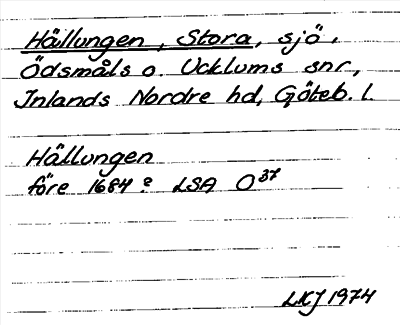 Hällungen, Stora, sjö,
Ödsmåls o. Ucklums snr,
Inlands Nordre hd, Göteb. l.
Hällungen
före 1684? LSA O37
LKJ 1974